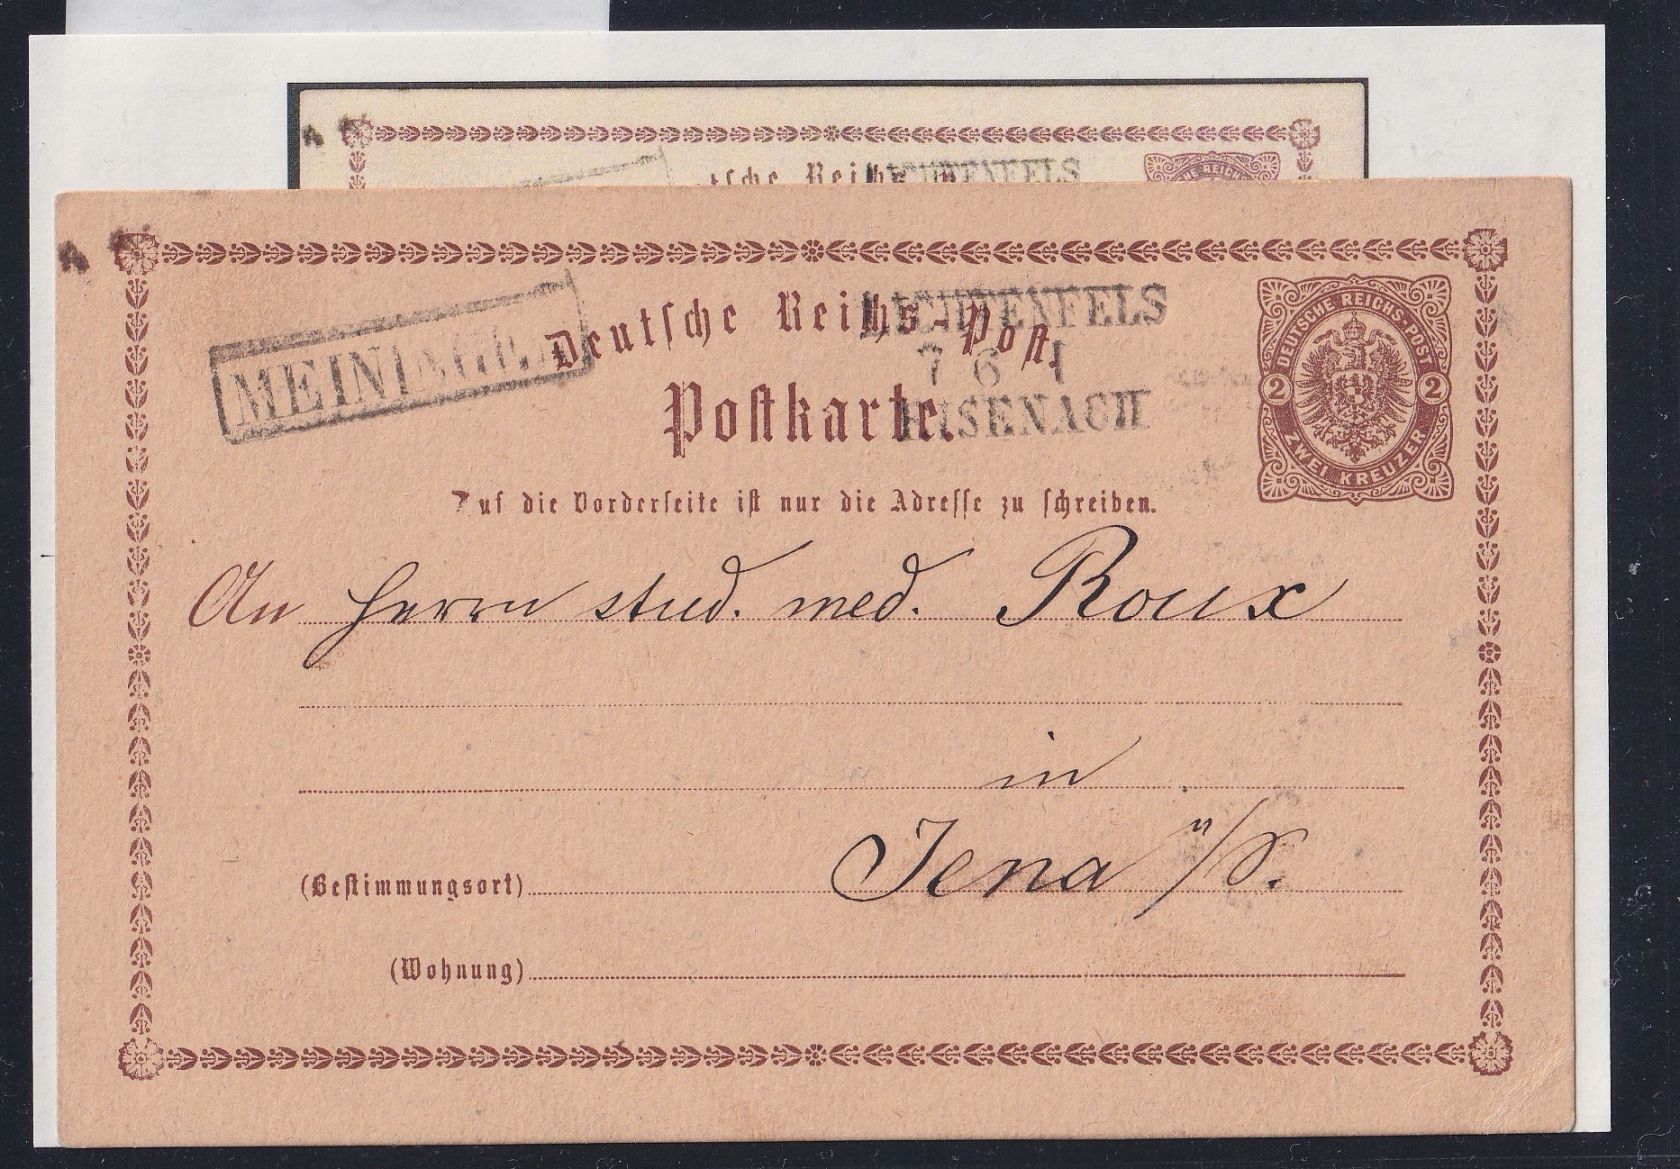 tsche Reichs
LICHTENFELS
MEININGEN
Deutsche Reichs-Post.
LICHTENFELS
7 6 I
EISENACH
Postkarte.
DEUTSCHE REICHS-POST
2 2
ZWEI KREUZER
Auf die Vorderseite ist nur die Adresse zu schreiben.
An Herrn stud. med. Roux
in
Jena a/S.
(Bestimmungsort)
(Wohnung)